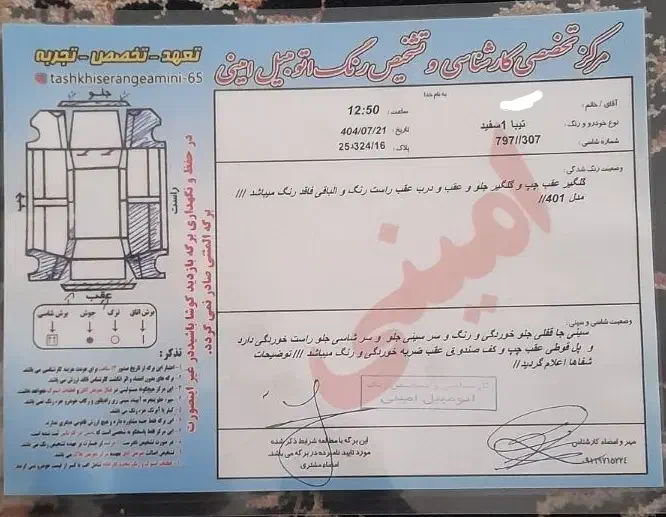 مرکز تخصصی کارشناسی و تشخیص رنگ اتومبیل امینی
تعهد - تخصص - تجربه
tashkhiserangeamini-65
به نام خدا
آقای / خانم :
ساعت : 12:50
نوع خودرو و رنگ : تیبا 1سفید
تاریخ : 404/07/21
شماره شاسی : 797//307
پلاک : 25د324/16
وضعیت رنگ شدگی :
گلگیر عقب چپ و گلگیر جلو و عقب و درب عقب راست رنگ و الباقی فاقد رنگ میباشد ///
مدل 401//
وضعیت شاسی و سینی :
سینی جا قفلی جلو خوردگی و رنگ و سر سینی جلو و سر شاسی جلو راست خوردگی دارد
و پل قوطی عقب چپ و کف صندوق عقب ضربه خوردگی و رنگ میباشد /// توضیحات
شفاها اعلام گردید//
کارشناسی و تشخیص رنگ
اتومبیل امینی
امینی
مهر و امضاء کارشناس
این برگه با مطالعه شرایط ذکر شده
مورد تایید نامبرده در برگه می باشد.
امضاء مشتری
جلو
راست
چپ
عقب
برش اتاق
ترک
جوش
برش شاسی
در حفظ و نگهداری برگه بازدید کوشا باشید در غیر اینصورت
برگه المثنی صادر نمی گردد.
تذکر :